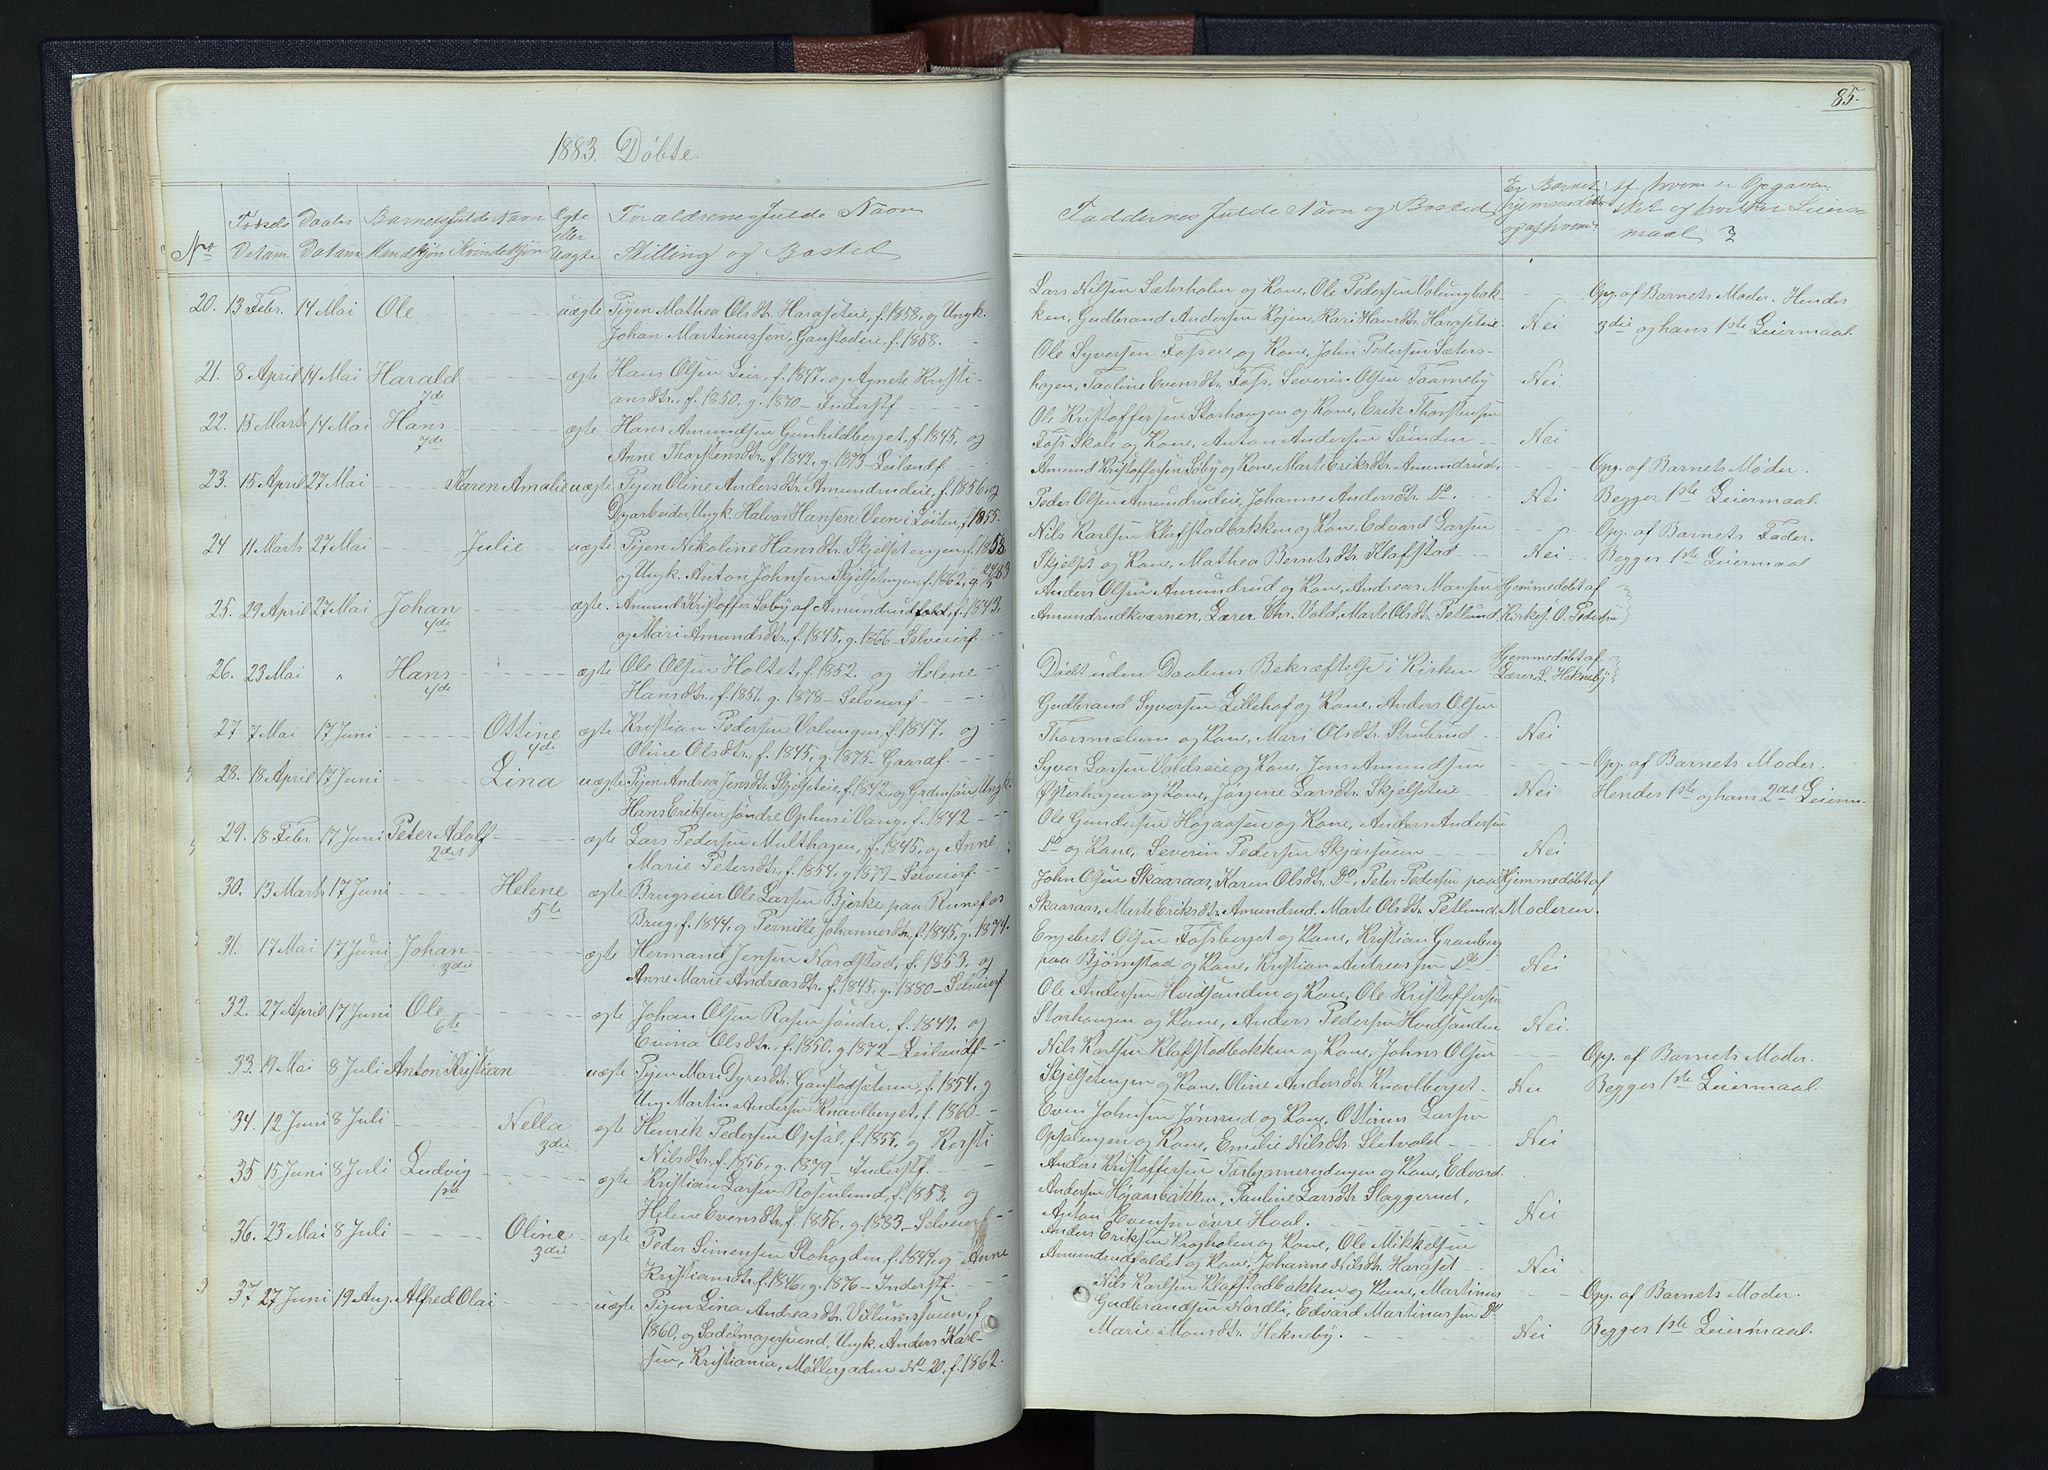 85.
1883. Døbte.
No Fødsels Datum Daabs Datum Barnets fulde Navn Mandkjøn Kvindekjøn Ægte eller Uægte Forældrenes fulde Navn Stilling og Bosted
Faddernes fulde Navn og Bosted Er Barnet hjemmedøbt og af hvem? Af hvem er Opgaven skel og hvilket Leiermaal?
20. 13 Febr. 14 Mai Ole uægte Pigen Mathea Olsdtr. Haraseteie, f. 1858, og Ungk.
Johan Martinussen, Ganstadeie, f. 1858.
Lars Nilsen Sæterholen og Kone, Ole Pedersen Volungbak-
ken, Gudbrand Andersen Løien, Kari Hansdtr. Haraseteie. Nei
Opg. af Barnets Moder. Hendes
3die og hans 1ste Leiermaal.
21. 8 April 14 Mai Harald 7de ægte Hans Olsen Leir, f. 1847, og Agnete Kristi-
ansdtr., f. 1850, g. 1870 - Inderstf.
Ole Syversen Fosseie og Kone, John Pedersen Sæters-
hagen, Pauline Evensdtr. Foss, Severin Olsen Taarneby Nei
22. 15 Marts 14 Mai Hans 7de ægte Hans Amundsen Gunhildberget, f. 1845, og
Anne Thorstensdtr., f. 1842, g. 1873 - Leilændf.
Ole Kristoffersen Storhaugen og Kone, Erik Thorstensen
Foss Skole og Kone, Anton Andersen Sønden Nei
23. 15 April 27 Mai Karen Amalie uægte Pigen Oline Andersdtr. Amundrudeie, f. 1856, og
Dgarbeider, Ungk. Halvor Hansen Veen i Løiten, f. 1855.
Amund Kristoffersen Søby og Kone, Marte Eriksdtr. Amundrud,
Peder Olsen Amundrudeie, Johanne Andersdtr. Do. Nei
Opg. af Barnets Moder.
Begges 1ste Leiermaal.
24 11 Marts 27 Mai Julie uægte Pigen Nikoline Hansdtr. Skjelsetengen, f. 1858,
og Ungk. Anton Johnsen Skjelsetengen, f. 1862, g. 83
Nils Karlsen Klafstadbakken og Kone, Edvard Larsen
Skjelset og Kone, Mathea Berntsdtr. Klafstad Nei
Opg. af Barnets Fader.
Begges 1ste Leiermaal
25. 29 April 27 Mai Johan 4de ægte. Amund Kristoffer. Søby af Amundrudfeld, f. 1843,
og Mari Amundsdtr., f. 1845, g. 1866 - Selveierf.
Anders Olsen Amundrud og Kone, Andreas Mansen
Amundrudkværnen, Lærer Chr. Vold, Marte Olsdtr. Petlund
Hjemmedøbt af
Kirkes. O. Pedersen
26. 23 Mai " Hans 4de ægte Ole Olsen Holtet, f. 1852. og Helene
Hansdtr., f. 1851, g. 1878 - Selveierf.
Dødt uden Daabens Bekræftelse i Kirken
Hjemmedøbt af
Lærer L. Hekneby
27 7 Mai 17 Juni Ottine 4de ægte Kristian Pedersen Volungen, f. 1847. og
Oline Olsdtr., f. 1845, g. 1875 - Gaardf.
Gudbrand Syversen Lillehof og Kone, Anders Olsen
Thorsmælum og Kone, Mari Olsdtr. Strubrud Nei
28. 18 April 17 Juni Lina uægte Pigen Andrea Jensdtr. Skjelseteie, f. 1842, og Grdmsøn Ungk.
Hans Eriksen søndre Ophus i Vang, f. 1842
Syver Larsen Valdseie og Kone, Jens Amundsen
Østerhagen og Kone, Jørgine Larsdtr. Skjelseteie Nei
Opg. af Barnets Moder.
Hendes 1ste og hans 2det Leierm.
29. 18 Febr. 17 Juni Peter Adolf 2det ægte Lars Pedersen Multhagen, f. 1845, og Anne
Marie Petersdtr., f. 1854, g. 1879 - Selveierf.
Ole Gundersen Høgaasen og Kone, Anders Andersen
Do og Kone, Severin Pedersen Skjærsveen Nei
30. 13 Marts 17 Juni Helene 5te ægte Brugseier Ole Larsen Bjerke paa Runefos
Brug, f. 1844, og Pernille Johannesdtr., f. 1845, g. 1874.
John Olsen Skaaraas, Karen Olsdtr. Do, Peter Pedersen paa
Skaaraas, Marte Eriksdtr. Amundrud. Marte Olsdtr. Petlund.
Hjemmedøbt af
Moderen.
31. 17 Mai 17 Juni Johan 3die ægte Hermand Jensen Nordstad, f. 1853, og
Anne Marie Andreasdtr., f. 1845, g. 1880 - Selveierf
Engebret Olsen Fossberget og Kone, Kristian Granberg
paa Bjørnstad og Kone, Kristian Andreassen Do Nei
32. 27 April 17 Juni Ole 6te ægte Johan Olsen Rosen søndre, f. 1849. og
Evina Olsdtr., f. 1850, g. 1872 - Leilændf.
Ole Andersen Hvidsanden og Kone, Ole Kristoffersen
Storhaugen og Kone, Anders Pedersen Hvidsanden Nei.
33. 19 Mai 8 Juli Anton Kristian uægte Pigen Mari Dyresdtr. Ganstadsæteren, f. 1854, og
Ung. Martin Andersen Knavlberget, f. 1860
Nils Karlsen Klafstadbakken og Kone, Johns Olsen
Skjelsetengen og Kone, Oline Andersdtr. Knavlberget Nei
Opg. af Barnets Moder.
Begges 1ste Leiermaal.
34. 12 Juni 8 Juli Nella 3die ægte Henrik Pedersen Opsal, f. 1855, og Kersti
Nilsdtr., f. 1856, g. 1879 - Inderstf.
Even Johnsen Jønsrud og Kone, Ottinus Larsen
Opsalengen og Kone, Emilie Nilsdtr. Sletvold Nei
35 15 Juni 8 Juli Ludvig 1ste ægte Kristian Larsen Rosenlund, f. 1853, og
Helene Evensdtr., f. 1856, g. 1883 - Selveierf
Anders Kristoffersen Torbjørnerudengen og Kone, Edvard
Andersen Høgaasbakken, Pauline Larsdtr. Slaggerud,
Anton Evensen øvre Hval. Nei
36. 23 Mai 8 Juli Oline 3die ægte Peder Simensen Slohagden, f. 1844, og Anne
Kristiansdtr., f. 1846, g. 1876 - Inderstf.
Anders Eriksen Kragholen og Kone, Ole Mikkelsen
Amundrudfaldet og Kone, Johanne Nilsdtr. Haraset Nei
37 27 Juni 19 Aug. Alfred Olai uægte Pigen Lina Andreasdtr. Villumsveen, f.
1860, og Sadelmagersvend, Ungk. Anders Karl-
sen, Kristiania, Møllergaden No 20, f. 1862.
Nils Karlsen Klafstadbakken og Kone, Martinus
Gudbrandsen Nordli, Edvard Martinussen Do
Marie Monsdtr. Hekneby. Nei
Opg. af Barnets Moder.
Begges 1ste Leiermaal.